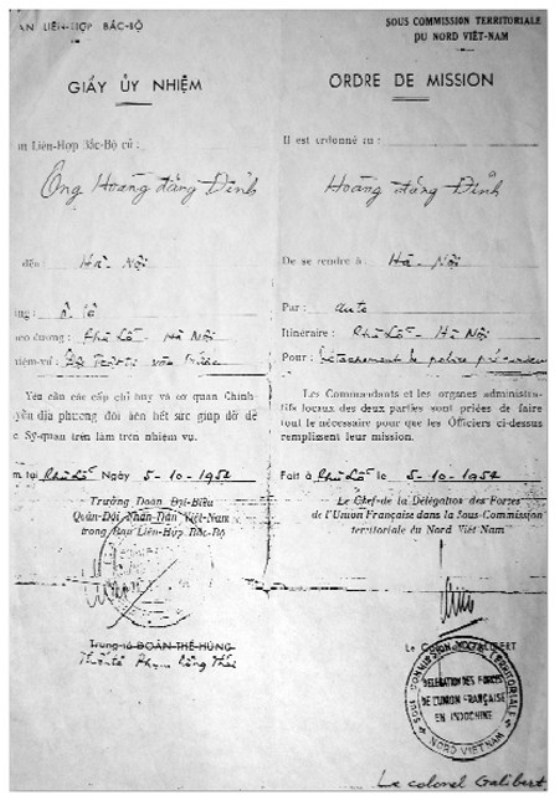 AN LIÊN-HỢP BẮC-BỘ
GIẤY ỦY NHIỆM
Liên-Hợp Bắc-Bộ cử :
Ông Hoàng đăng Đỉnh
đến Hà-Nội
ô tô
đường : Phủ Lỗ - Hà Nội
Yêu cầu các cấp chỉ huy và cơ quan Chính
địa phương đôi bên hết sức giúp đỡ để
Sỹ-quan trên làm tròn nhiệm vụ.
tại Phủ Lỗ Ngày 5-10-1954
Trưởng Đoàn Đại-Biểu
Quân-Đội Nhân-Dân Việt-Nam
trong Ban Liên-Hợp Bắc-Bộ
Trung-tá ĐOÀN-THẾ-HÙNG
Thiếu tá Phạm
SOUS COMMISSION TERRITORIALE
DU NORD VIÊT-NAM
ORDRE DE MISSION
Il est ordonné au :
Hoàng đăng Đỉnh
De se rendre à : Hà-Nội
Par : auto
Itinéraire : Phủ Lỗ - Hà Nội
Pour : Détachement de police
Les Commandants et les organes administra-
tifs locaux des deux parties sont priées de faire
tout le nécessaire pour que les Officiers ci-dessus
remplissent leur mission.
Fait à Phủ Lỗ le 5-10-1954
Le Chef de la Délégation des Forces
de l'Union Française dans la Sous-Commission
territoriale du Nord Viêt-Nam
Le
SOUS COMMISSION TERRITORIALE
DELEGATION DES FORCES
DE L'UNION FRANÇAISE
EN INDOCHINE
NORD VIETNAM
Le colonel Galibert